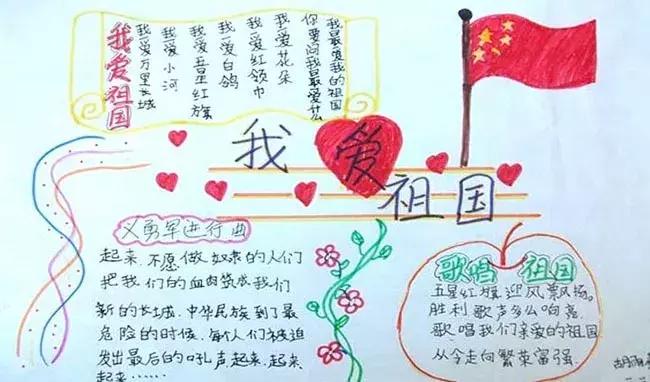 我爱祖国
我爱万里长城
我爱小河
我爱五星红旗
我爱白鸽
我爱红领巾
我爱花朵
你要问我最爱什么
我最爱我的祖国
我爱
祖国
义勇军进行曲
起来,不愿做奴隶的人们
把我们的血肉筑成我们
新的长城,中华民族到了最
危险的时候,每个人们被迫
发出最后的吼声,起来,起来
起来……
歌唱 祖国
五星红旗迎风飘扬。
胜利歌声多么响亮
歌唱我们亲爱的祖国
从令走向繁荣富强